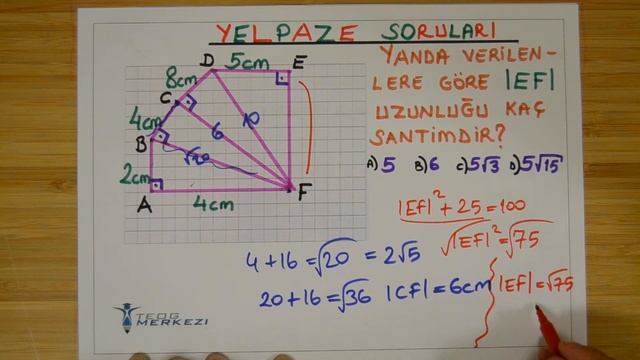 YELPAZE SORULARI
YANDA VERİLEN-
LERE GÖRE |EF|
UZUNLUĞU KAÇ
SANTİMDİR?
A) 5 B) 6 C) 5√3 D) 5√15
D 5cm E
8cm
C
4cm
B
2cm
A 4cm F
10
6
√20
|EF|² + 25 = 100
√|EF|² = √75
|EF| = √75
4 + 16 = √20 = 2√5
20 + 16 = √36 |CF| = 6cm
TEOG
MERKEZİ